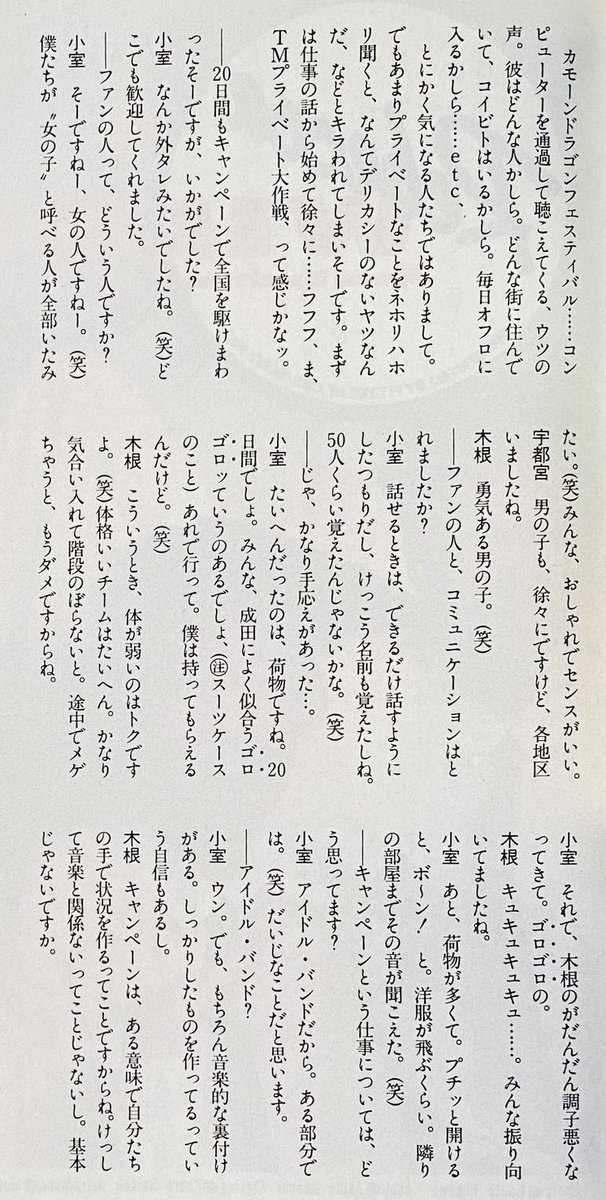 カモーンドラゴンフェスティバル……コン
ピューターを通過して聴こえてくる、ウツの
声。彼はどんな人かしら。どんな街に住んで
いて、コイビトはいるかしら。毎日オフロに
入るかしら……ｅｔｃ、
とにかく気になる人たちではありまして。
でもあまりプライベートなことをネホリハホ
リ聞くと、なんてデリカシーのないヤツなん
だ、などとキラわれてしまいそーです。まず
は仕事の話から始めて徐々に……フフフ、ま、
ＴＭプライベート大作戦、って感じかなッ。
――20日間もキャンペーンで全国を駆けまわ
ったそーですが、いかがでした？
小室　なんか外タレみたいでしたね。（笑）ど
こでも歓迎してくれました。
――ファンの人って、どういう人ですか？
小室　そーですねー、女の人ですねー。（笑）
僕たちが〝女の子〟と呼べる人が全部いたみ
たい。（笑）みんな、おしゃれでセンスがいい。
宇都宮　男の子も、徐々にですけど、各地区
いましたね。
木根　勇気ある男の子。（笑）
――ファンの人と、コミュニケーションはと
れましたか？
小室　話せるときは、できるだけ話すように
したつもりだし、けっこう名前も覚えたしね。
50人くらい覚えたんじゃないかな。（笑）
――じゃ、かなり手応えがあった…。
小室　たいへんだったのは、荷物ですね。20
日間でしょ。みんな、成田によく似合うゴロ
ゴロッていうのあるでしょ、（㊟スーツケース
のこと）あれで行って。僕は持ってもらえる
んだけど。（笑）
木根　こういうとき、体が弱いのはトクです
よ。（笑）体格いいチームはたいへん。かなり
気合い入れて階段のぼらないと。途中でメゲ
ちゃうと、もうダメですからね。
小室　それで、木根のがだんだん調子悪くな
ってきて。ゴロゴロの。
木根　キュキュキュキュ……。みんな振り向
いてましたね。
小室　あと、荷物が多くて。プチッと開ける
と、ボ～ン！　と。洋服が飛ぶくらい。隣り
の部屋までその音が聞こえた。（笑）
――キャンペーンという仕事については、ど
う思ってます？
小室　アイドル・バンドだから。ある部分で
は。（笑）だいじなことだと思います。
――アイドル・バンド？
小室　ウン。でも、もちろん音楽的な裏付け
がある。しっかりしたものを作ってるってい
う自信もあるし。
木根　キャンペーンは、ある意味で自分たち
の手で状況を作るってことですからね。けっし
て音楽と関係ないってことじゃないし。基本
じゃないですか。